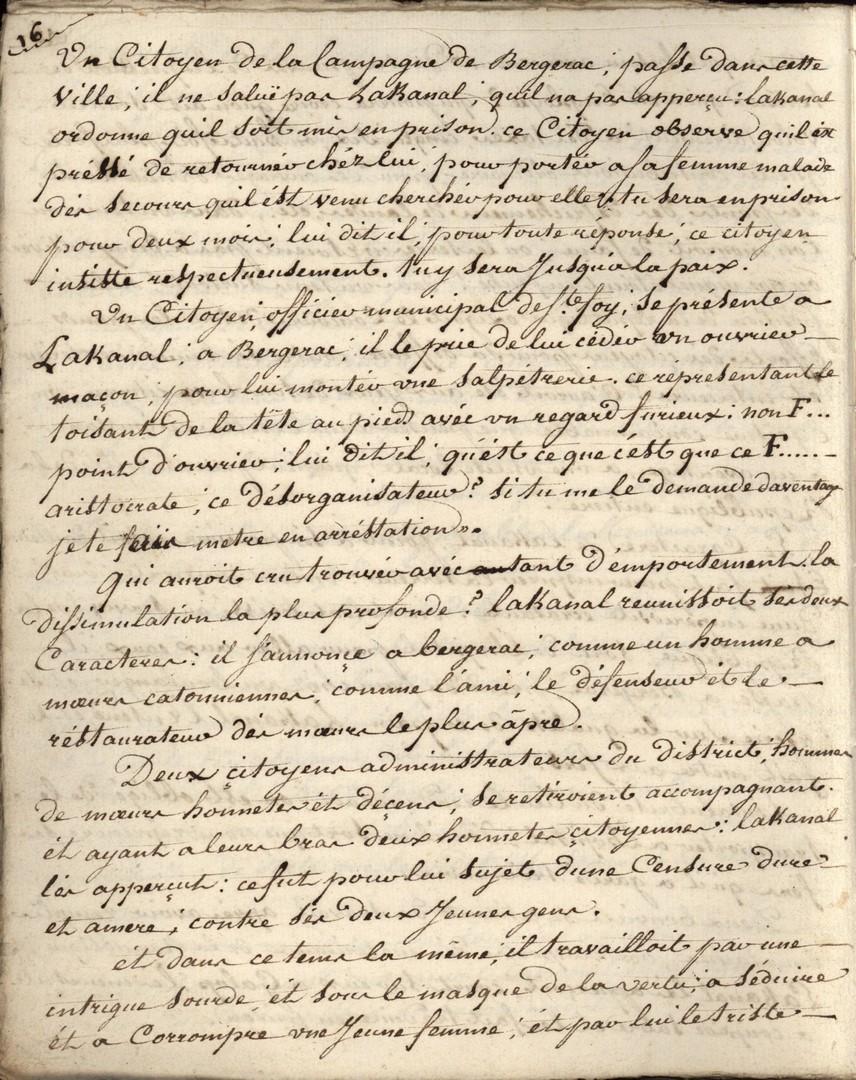 16
Un Citoyen de la Campagne de Bergerac; passe dans cette
Ville; il ne saluë pas Lakanal; quil na pas apperçu: lakanal
ordonne quil soit mis en prison. ce Citoyen observe quil est
préssé de retourner chéz lui; pour porter a sa femme malade
dés secours quil ést venu cherchér pour elle; tu sera en prison
pour deux mois; lui dit il; pour toute réponse; ce citoyen
insiste respectueusement. tu y sera Jusqu'a la paix.
Un Citoyen; officier municipal de ste foy; se présente a
Lakanal; a Bergerac; il le prie de lui cédér un ouvrier —
maçon; pour lui montér une salpétrerie. ce répresentant le
toisant de la tëte au pieds avéc un regard furieux: non F...
point d'ouvrier; lui dit il; qu'ést ce que c'ést que ce F..... —
aristocrate; ce désorganisateur? si tu me le demande daventage
je te fais metre en arréstation».
Qui auroit cru trouvér avéc autant d'émportement la
dissimulation la plus profonde? lakanal reunissoit sés deux
Caracteres: il s'annonçe a bergerac; comme un homme a
mœurs catonniennes; comme l'ami; le défenseur ét le —
réstaurateur dés mœurs le plus âpre.
Deux çitoyens administrateurs du district; hommes
de mœurs honnetes ét déçens; se retiroient accompagnant.
ét ayant a leurs bras deux honnetes çitoyennes: lakanal
lés apperçut: ce fut pour lui sujet d'une Censure dure
et amere; contre sés deux Jeunes gens.
ét dans ce tems la même; il travailloit par une —
intrigue sourde; ét sous le masque de la vertu; a séduire
ét a Corrompre une Jeune femme; ét par lui le triste —